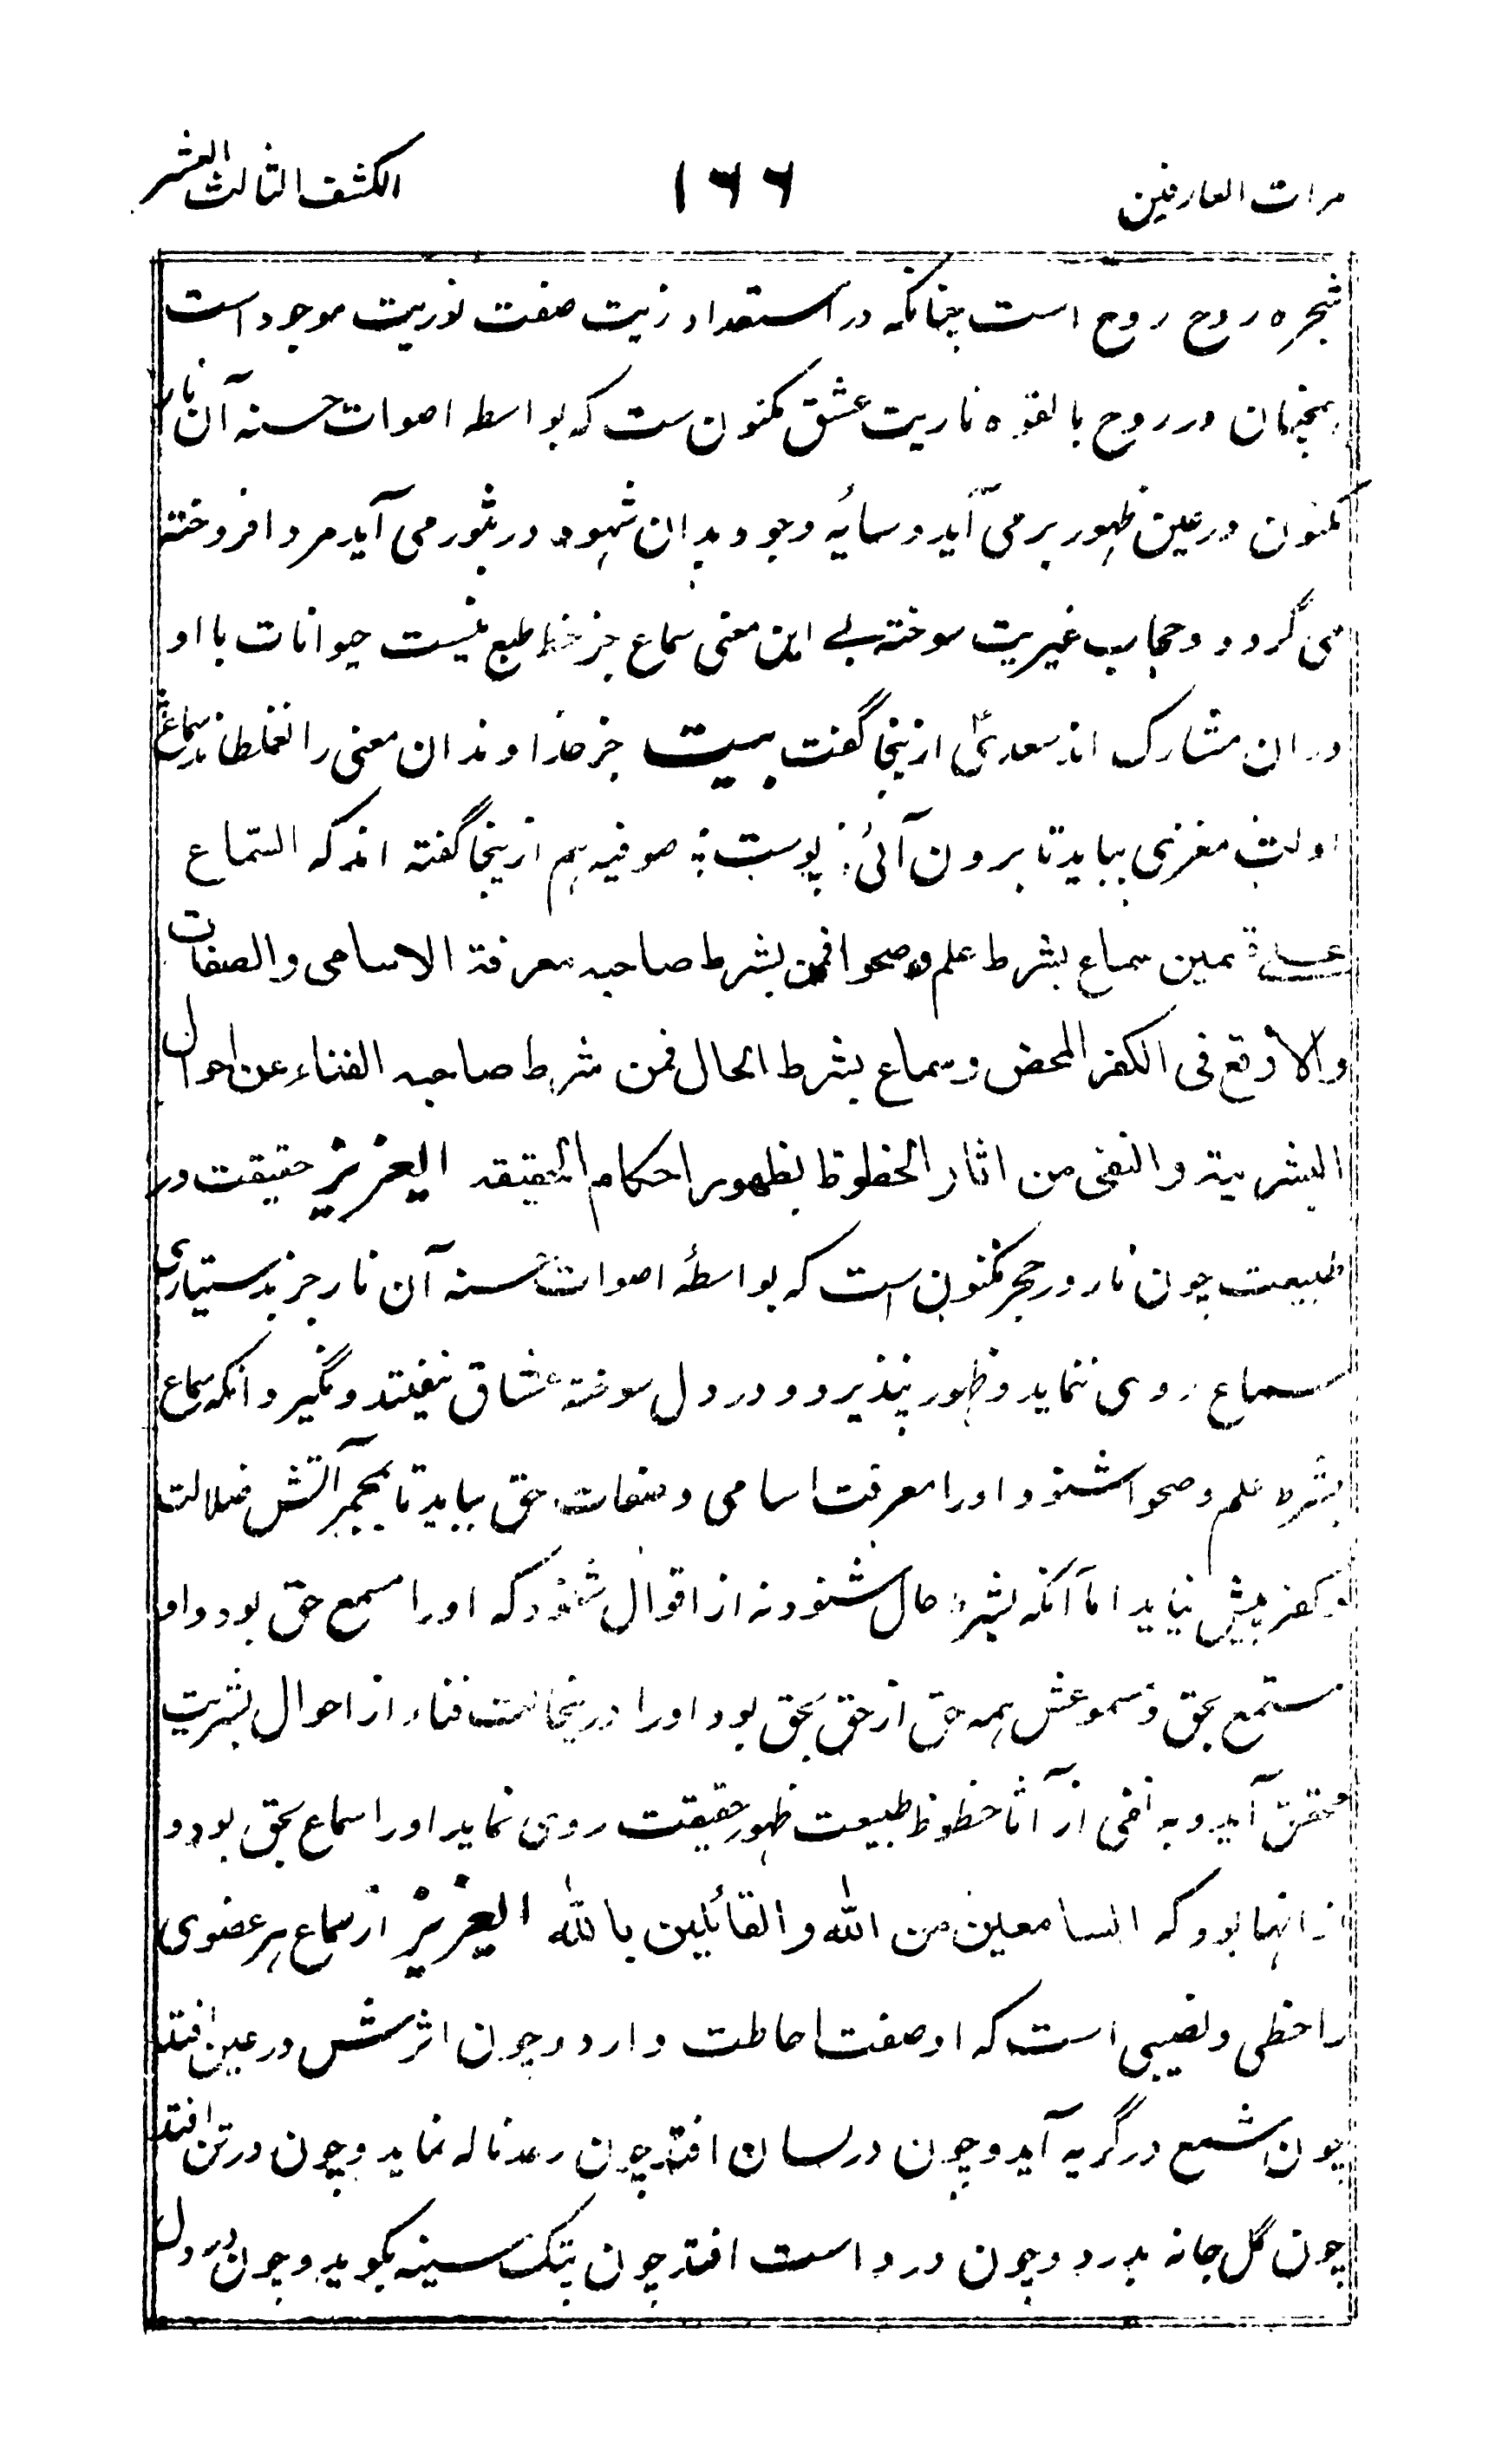 مرات العارفین ۱۶۶ الکشف الثالث العشر
شجره روح روح است چنانکه در استعداد زیت صفت نوریت موجود است
همچنان در روح بالقوه ناریت عشق مکنون ست که بواسطه اصوات حسنه آن نار
مکنون در عین ظهور برمی آید و سایۂ وجود بدان شهود در شور می آید مرد افروخته
می گردد و حجاب غیریت سوخته بے این معنی سماع جز حظ طبع نیست حیوانات با او
دران مشارک اند سعدیؒ ازینجا گفت بیت جز خداوندان معنی را نغلطاند سماع
اولت مغزی بباید تا برون آئی ز پوست ؛ صوفیه هم ازینجا گفته اند که السماع
علی قسمین سماع بشرط علم وصحوا فمن بشرط صاحبه معرفة الاسامی والصفات
والا وقع فی الکفر المحض وسماع بشرط الحال فمن شرط صاحبه الفناء عن احوال
البشریة والنفی من اثار الحظوظ بظهور احکام الحقیقه العزیز حقیقت در
طبیعت چون نار در حجر مکنون است که بواسطۂ اصوات حسنه آن نار جز بدستیاری
سماع روی ننماید و ظهور نپذیرد و در دل سوخته عشاق نیفیتد و نگیر و انکه سماع
بشرط علم و صحوا شنود اورا معرفت اسامی و صفات حق بباید تا بجمر آتش ضلالت
و کفر پیش نیاید اما آنکه بشرط حال شنود نه از اقوال شنود که اورا مسمع حق بود و او
مستمع بحق و مسموعش همه حق از حق بحق بود اورا درینجا صحت فناء از احوال بشریت
محقق آید و به نفی از آثا حظوظ طبیعت ظهور حقیقت روی نماید اورا سماع بحق بود و
از انها بود که السامعین من الله والقائلین بالله العزیز از سماع هر عضوی
را حظی و نصیبی است که او صفت احاطت دارد و چون اثرش در عین افتد
چون شمع در گریه آید و چون در لسان افتد چون رعد ناله نماید و چون در تن افتد
چون گل جامه بدرد و چون در دست افتد چون پتک سینه بکوبد و چون در دل